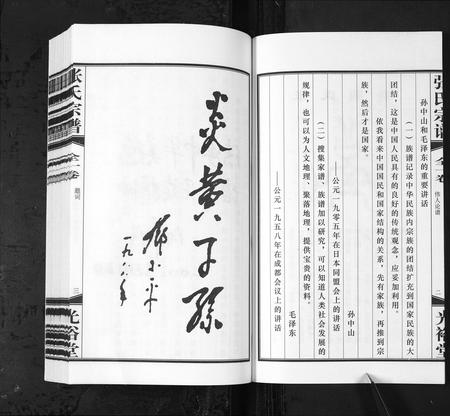 张氏宗谱
全一卷
伟人论谱
二
光裕堂
孙中山和毛泽东的重要讲话
（一）族谱记录中华民族内宗族的团结扩充到国家民族的大
团结，这是中国人民具有的良好的传统观念，应妥加利用。
依我看来中国国民和国家结构的关系，先有家族，再推到宗
族，然后才是国家。
孙中山
——公元一九〇五年在日本同盟会上的讲话
（二）搜集家谱、族谱加以研究，可以知道人类社会发展的
规律，也可以为人文地理、聚落地理，提供宝贵的资料。
毛泽东
——公元一九五八年在成都会议上的讲话
炎黄子孙
邓小平
一九八八年
张氏宗谱
全一卷
题词
三
光裕堂